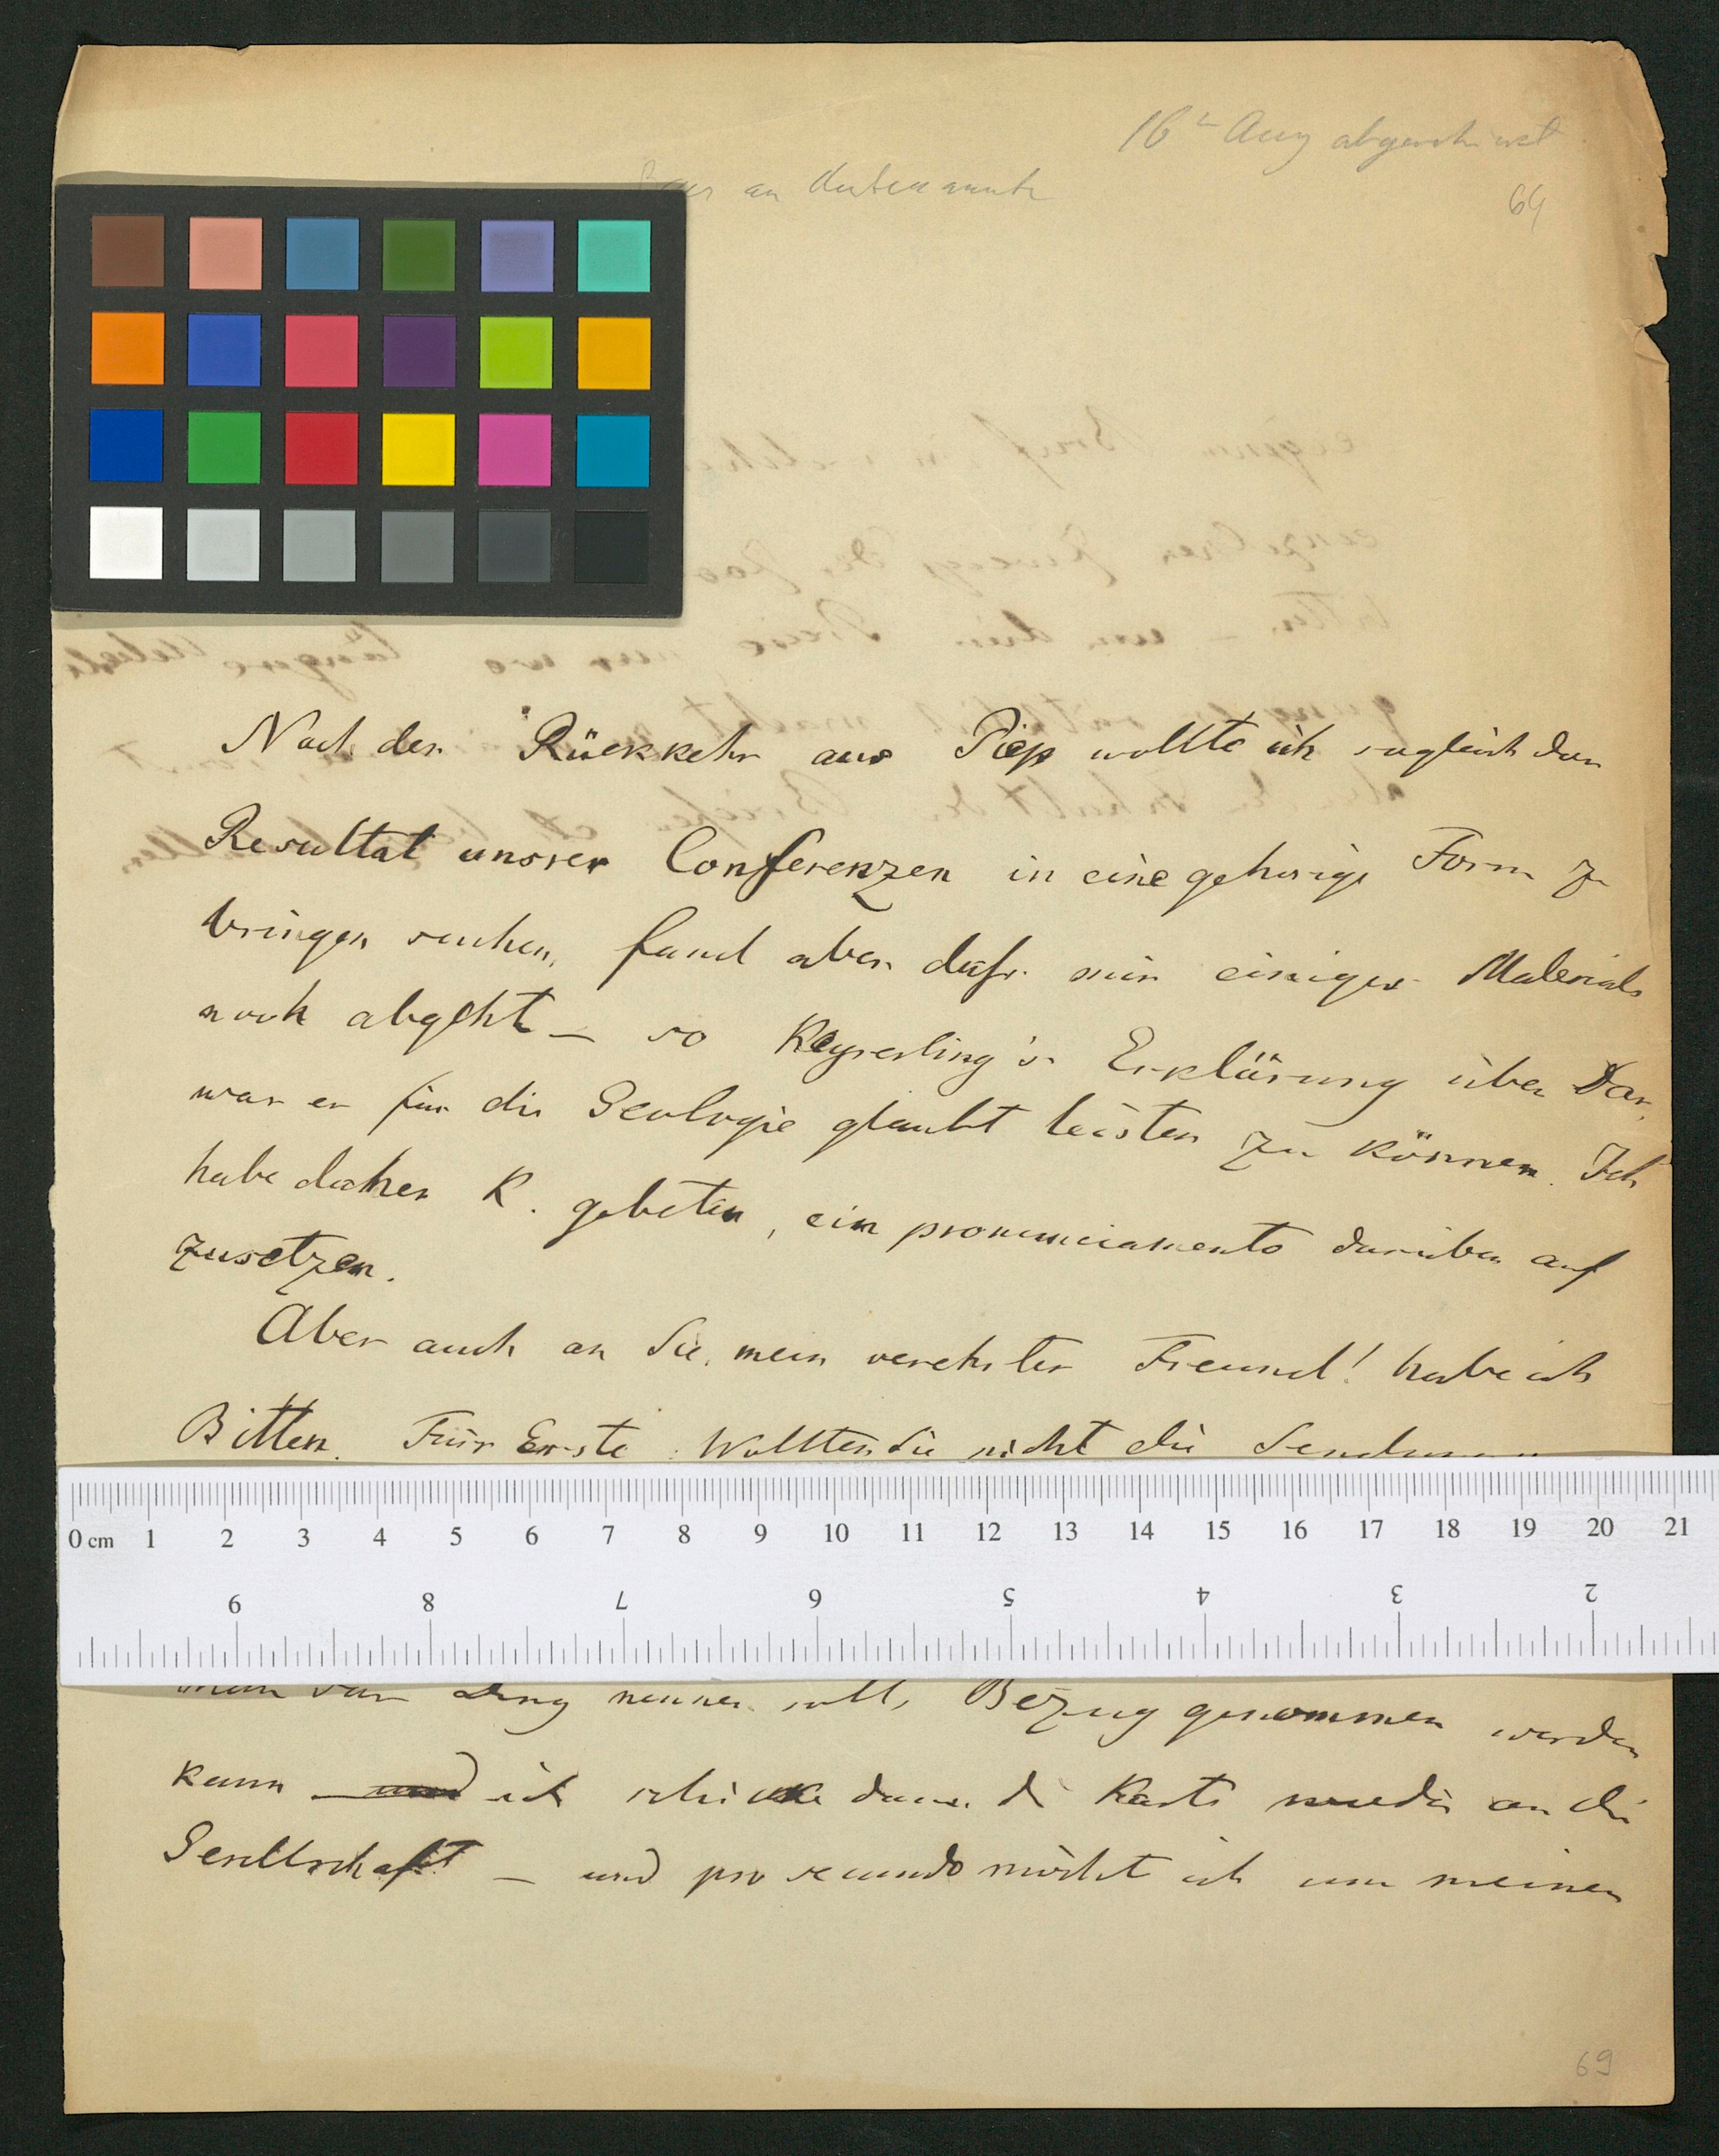 16 Aug abgeschickt
an Unbekannte
64
Nach der Rückkehr aus Piep wollte ich sogleich das
Resultat unsrer Conferenzen in eine gehörige Form zu
bringen suchen, fand aber daß mir einiges Material
noch abgeht – so Keyserling's Erklärung über Das,
was er für die Geologie glaubt leisten zu können. Ich
habe daher K. gebeten, ein pronunciamento darüber auf
zusetzen.
Aber auch an Sie, mein verehrter Freund! habe ich
Bitten. Für Erste: Wollten Sie nicht die
0 cm 1 2 3 4 5 6 7 8 9 10 11 12 13 14 15 16 17 18 19 20 21
9 8 7 6 5 4 3 2
man das Ding nennen soll, Bezug genommen werden
kann – ich schicke dann die Karte wieder an die
Gesellschaft – und pro secundo möcht ich um meinen
69